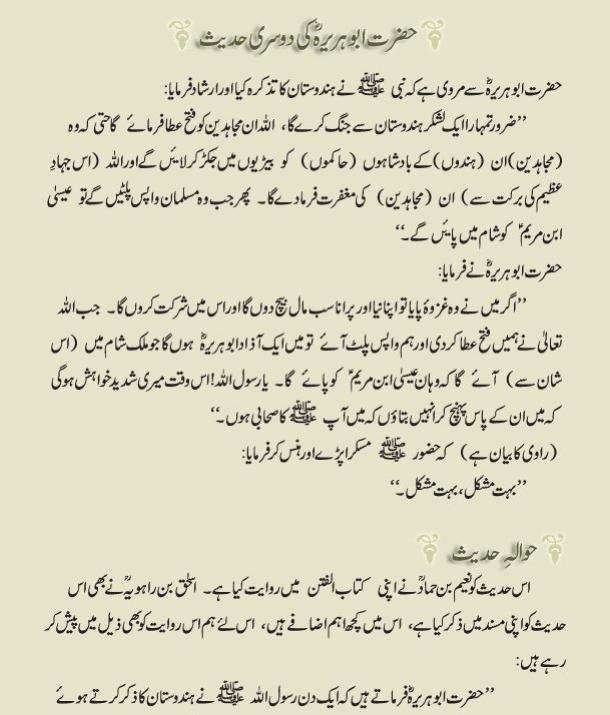 حضرت ابو ہریرہؓ کی دوسری حدیث
حضرت ابو ہریرہؓ سے مروی ہے کہ نبی ﷺ نے ہندوستان کا تذکرہ کیا اور ارشاد فرمایا:
’’ضرور تمہارا ایک لشکر ہندوستان سے جنگ کرے گا، اللہ ان مجاہدین کو فتح عطا فرمائے گا حتی کہ وہ
(مجاہدین) ان (ہندوں) کے بادشاہوں (حاکموں) کو بیڑیوں میں جکڑ کر لائیں گے اور اللہ (اس جہادِ
عظیم کی برکت سے) ان (مجاہدین) کی مغفرت فرما دے گا۔ پھر جب وہ مسلمان واپس پلٹیں گے تو عیسیٰ
ابن مریمؑ کو شام میں پائیں گے۔‘‘
حضرت ابو ہریرہؓ نے فرمایا:
’’اگر میں نے وہ غزوۂ پایا تو اپنا نیا اور پرانا سب مال بیچ دوں گا اور اس میں شرکت کروں گا۔ جب اللہ
تعالیٰ نے ہمیں فتح عطا کر دی اور ہم واپس پلٹ آئے تو میں ایک آزاد ابو ہریرہؓ ہوں گا جو ملک شام میں (اس
شان سے) آئے گا کہ وہاں عیسیٰ ابن مریمؑ کو پائے گا۔ یا رسول اللہ! اس وقت میری شدید خواہش ہو گی
کہ میں ان کے پاس پہنچ کر انہیں بتاؤں کہ میں آپ ﷺ کا صحابی ہوں۔‘‘
(راوی کا بیان ہے) کہ حضور ﷺ مسکرا پڑے اور ہنس کر فرمایا:
’’بہت مشکل، بہت مشکل۔‘‘
حوالہِ حدیث
اس حدیث کو نعیم بن حمادؒ نے اپنی کتاب الفتن میں روایت کیا ہے۔ اسحٰق بن راہویہؒ نے بھی اس
حدیث کو اپنی مسند میں ذکر کیا ہے، اس میں کچھ اہم اضافے ہیں، اس لئے ہم اس روایت کو بھی ذیل میں پیش کر
رہے ہیں:
’’حضرت ابو ہریرہؓ فرماتے ہیں کہ ایک دن رسول اللہ ﷺ نے ہندوستان کا ذکر کرتے ہوئے